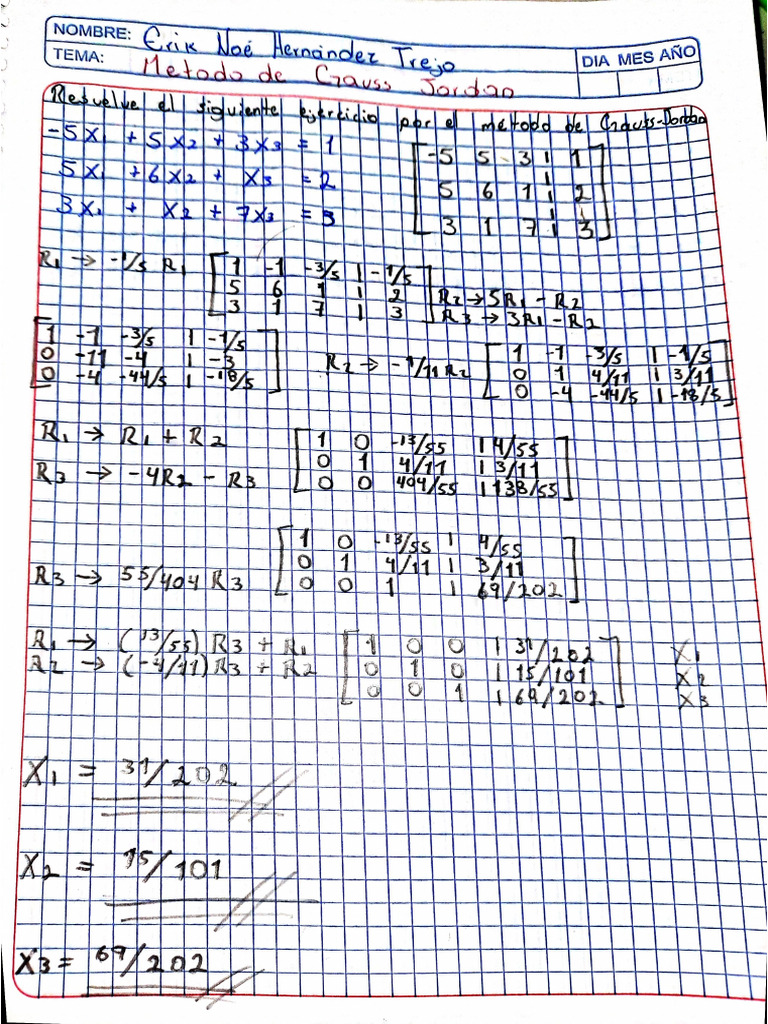 NOMBRE: Erik Noé Hernández Trejo
TEMA: Metodo de Gauss Jordan
DIA MES AÑO
Resuelve el siguiente ejercicio por el método de Gauss-Jordan
-5X1 + 5X2 + 3X3 = 1
5X1 + 6X2 + X3 = 2
3X1 + X2 + 7X3 = 3
-5 5 3 | 1
5 6 1 | 2
3 1 7 | 3
R1 → -1/5 R1
1 -1 -3/5 | -1/5
5 6 1 | 2
3 1 7 | 3
R2 → 5R1 - R2
R3 → 3R1 - R2
1 -1 -3/5 | -1/5
0 -11 -4 | -3
0 -4 -44/5 | -18/5
R2 → -1/11 R2
1 -1 -3/5 | -1/5
0 1 4/11 | 3/11
0 -4 -44/5 | -18/5
R1 → R1 + R2
R3 → -4R2 - R3
1 0 -13/55 | 4/55
0 1 4/11 | 3/11
0 0 404/55 | 138/55
R3 → 55/404 R3
1 0 -13/55 | 4/55
0 1 4/11 | 3/11
0 0 1 | 69/202
R1 → (13/55) R3 + R1
R2 → (-4/11) R3 + R2
1 0 0 | 31/202 X1
0 1 0 | 15/101 X2
0 0 1 | 69/202 X3
X1 = 31/202
X2 = 15/101
X3 = 69/202